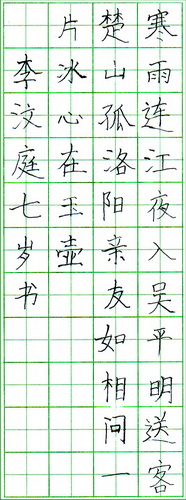 寒雨连江夜入吴平明送客
楚山孤洛阳亲友如相问一
片冰心在玉壶
李汶庭七岁书